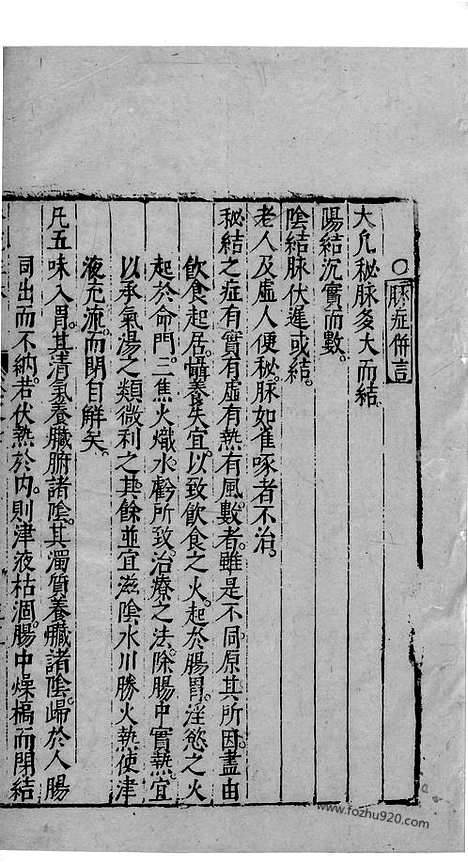 ○脉症併言
大凡秘脉多大而結。
陽結沉實而數。
陰結脉伏遲或結。
老人及虚人便秘。脉如雀啄者不治。
秘結之症有實有虚有熱有風。數者。雖是不同。原其所因。盡由
飲食起居。囀養失宜。以致飲食之火。起於腸胃。淫慾之火
起於命門。三焦火熾水虧所致。治療之法。除腸中實熱。宜
以承氣湯之類微利之其餘並宜滋陰水川勝火熱使津
液充流。而閉自解矣。
凡五味入胃。其清氣養臟腑諸陰。其濁質養臟諸陰。歸於人腸
司出而不納。若伏熱於内。則津液枯涸。腸中燥槁而閉結
www.fozhu920.com